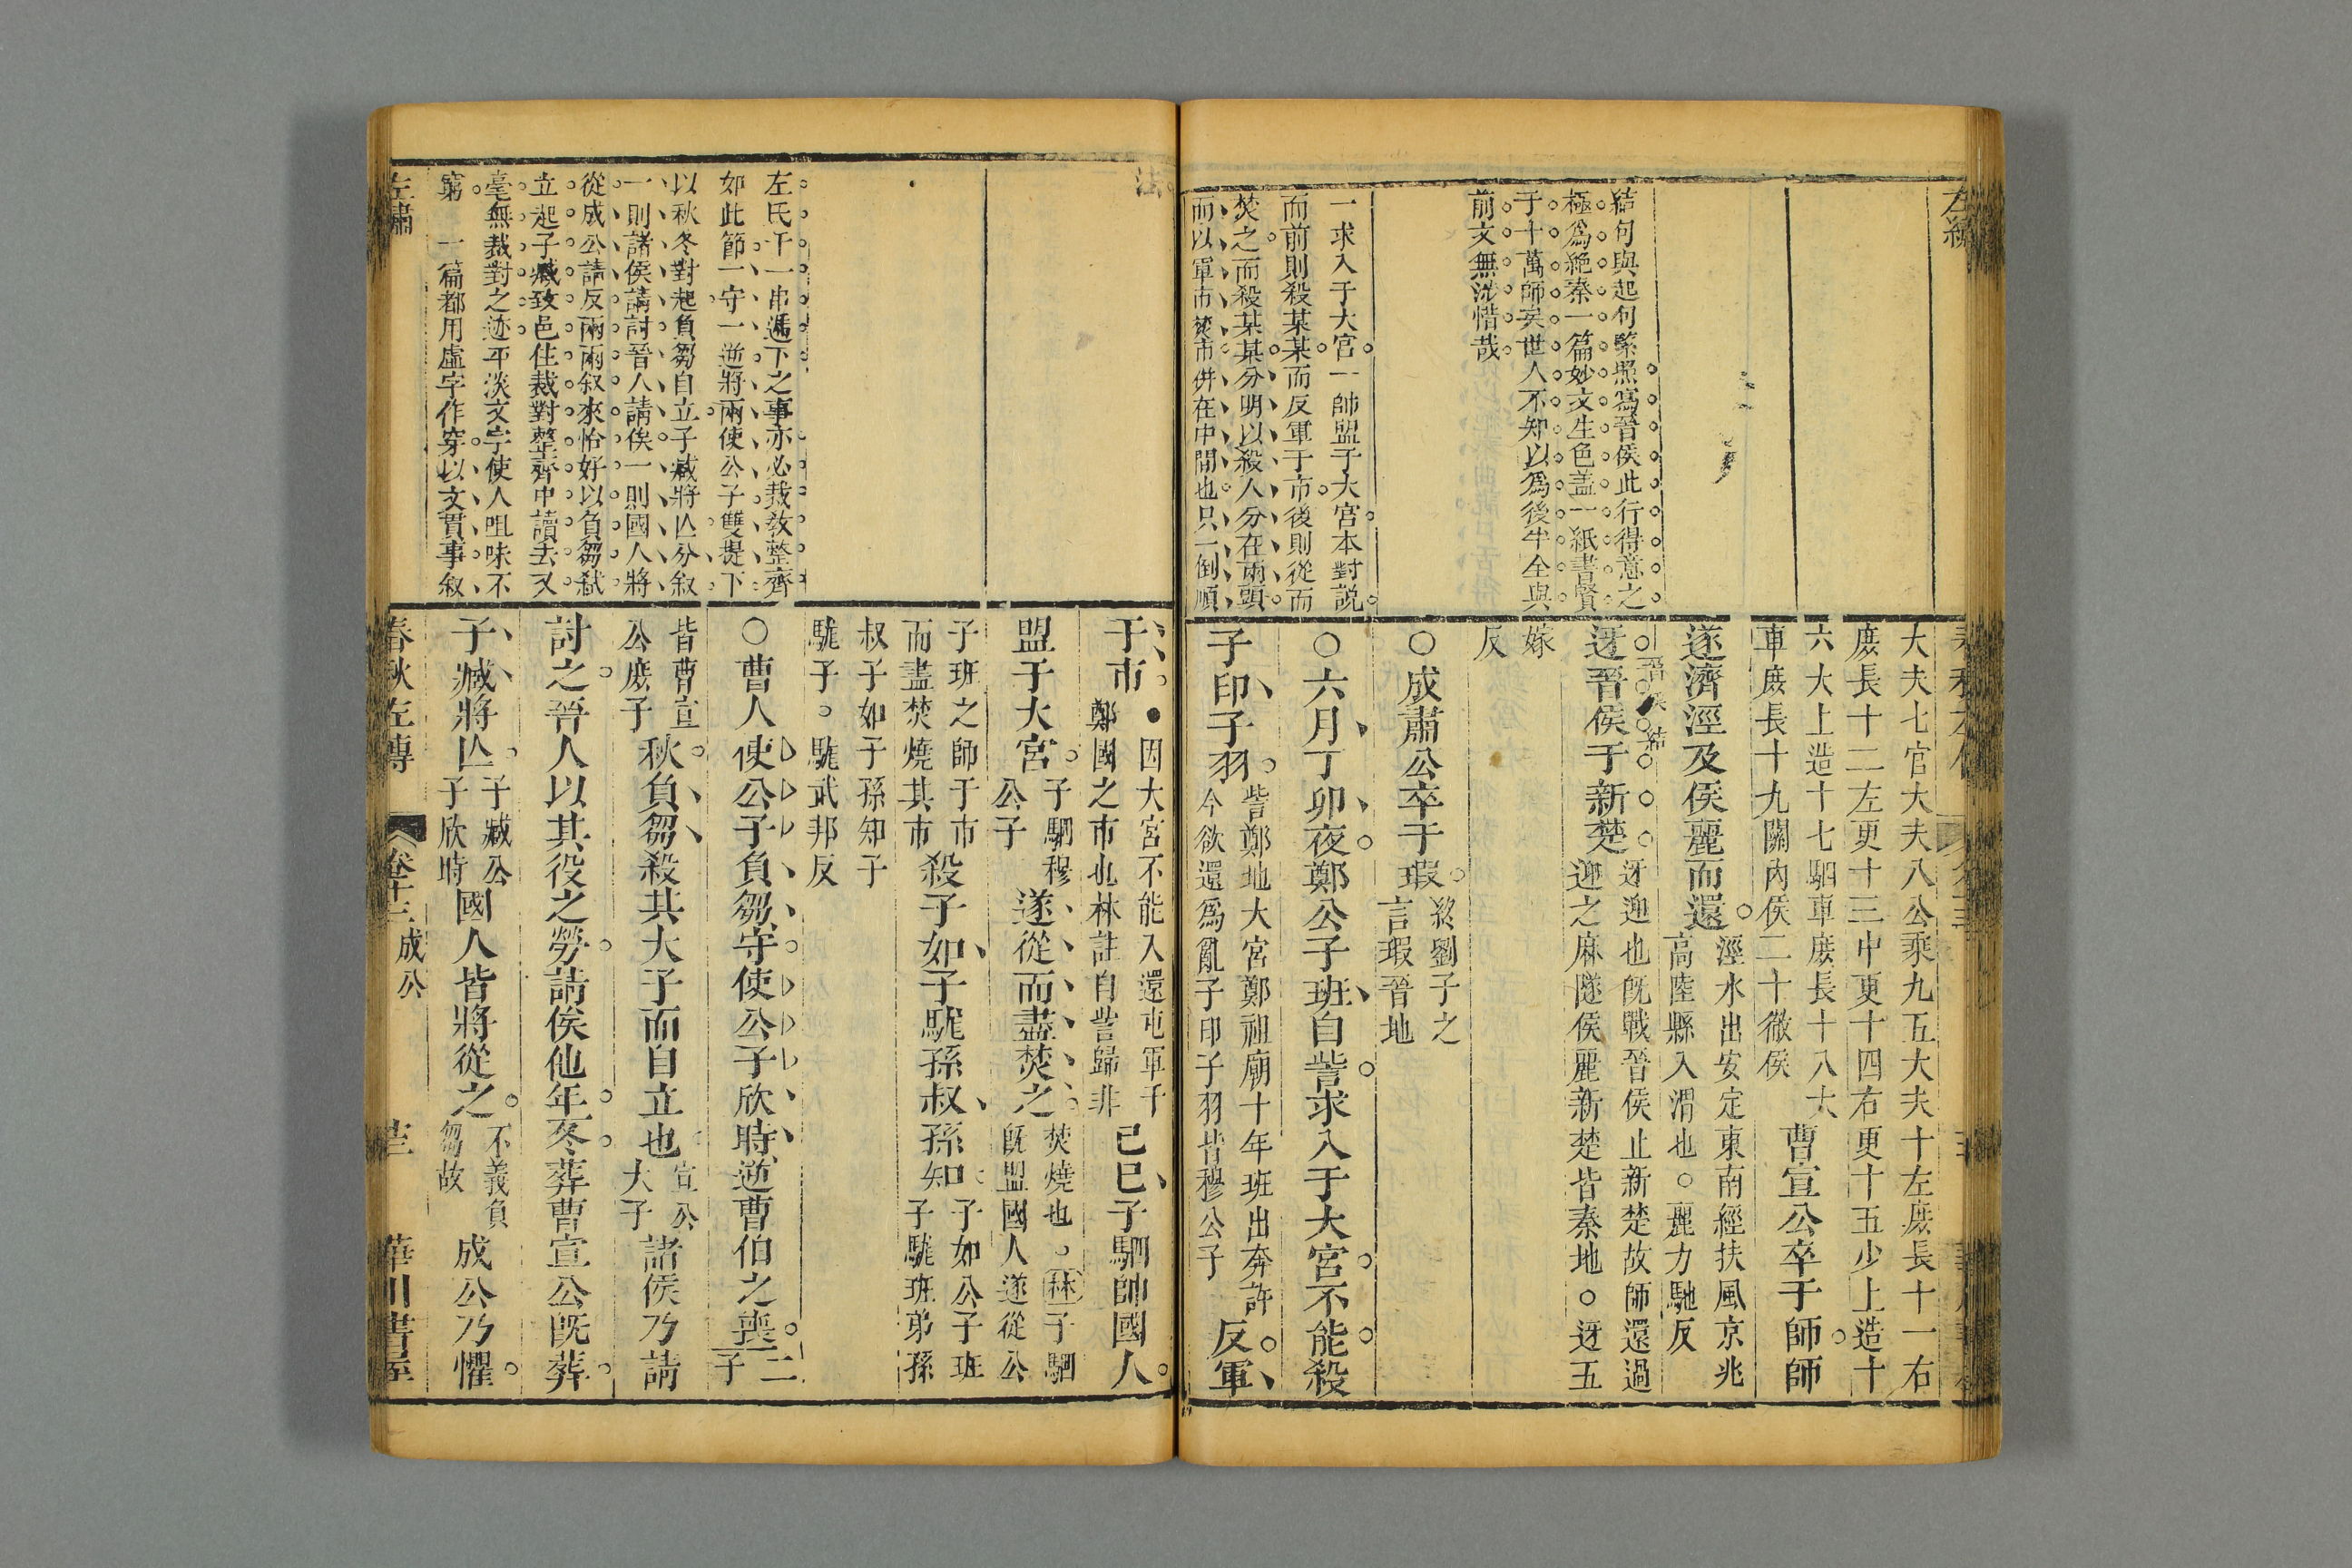 左繡
結句與起句緊照寫晉侯此行得意之
極爲絶秦一篇妙文生色蓋一紙書賢
于十萬師矣世人不知以爲後半全與
前文無涉惜哉
一求入于大宮一帥盟于大宮本對説
而前則殺某某而反軍于市後則從而
焚之而殺某某分明以殺人分在兩頭
而以軍市焚市併在中間也只一倒順
大夫七官大夫八公乘九五大夫十左庶長十一右
庶長十二左更十三中更十四右更十五少上造十
六大上造十七駟車庶長十八大
車庶長十九關內侯二十徹侯
曹宣公卒于師師
遂濟涇及侯麗而還
涇水出安定東南經扶風京兆
高陸縣入渭也○麗力馳反
迓晉侯于新楚
迓迎也旣戰晉侯止新楚故師還過
迎之麻隧侯麗新楚皆秦地○迓五
嫁
反
○成肅公卒于瑕
終劉子之
言瑕晉地
○六月丁卯夜鄭公子班自訾求入于大宮不能殺
子印子羽
訾鄭地大宮鄭祖廟十年班出奔許
今欲還爲亂子印子羽皆穆公子
反軍
左氏于一串遞下之事亦必裁教整齊
如此節一守一逆將兩使公子雙提下
以秋冬對起負芻自立子臧將亾分叙
一則諸侯請討晉人請俟一則國人將
從成公請反兩兩叙來恰好以負芻弑
立起子臧致邑住裁對整齊中讀去又
毫無裁對之迹平淡文字使人咀味不
窮 一篇都用虛字作穿以文貫事叙
于市
●因大宮不能入還屯軍于
鄭國之市也林註自訾歸非
己巳子駟帥國人
盟于大宮
子駟穆
公子
遂從而盡焚之
焚燒也○林子駟
旣盟國人遂從公
子班之師于市
而盡焚燒其市
殺子如子駹孫叔孫知
子如公子班
子駹班弟孫
叔子如子孫知子
駹子○駹武邦反
○曹人使公子負芻守使公子欣時逆曹伯之喪
二
子
皆曹宣
公庶子
秋負芻殺其大子而自立也
宣公
大子
諸侯乃請
討之晉人以其役之勞請俟他年冬葬曹宣公旣葬
子臧將亾
子臧公
子欣時
國人皆將從之
不義負
芻故
成公乃懼
左繡
春秋左傳
卷十三
成公
華川書屋